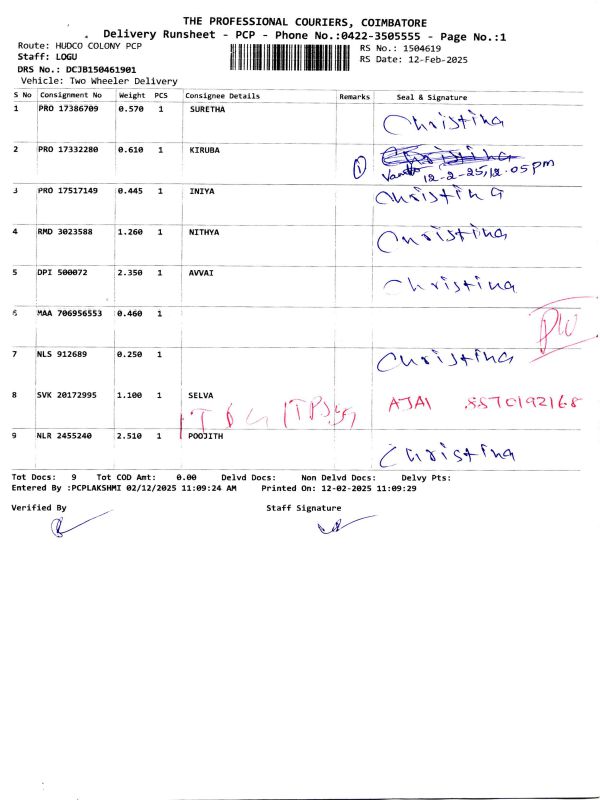 THE PROFESSIONAL COURIERS, COIMBATORE
Delivery Runsheet - PCP - Phone No.:0422-3505555 - Page No.:1
Route: HUDCO COLONY PCP RS No.: 1504619
Staff: LOGU RS Date: 12-Feb-2025
DRS No.: DCJB150461901
Vehicle: Two Wheeler Delivery
S No Consignment No Weight PCS Consignee Details Remarks Seal & Signature
1 PRO 17386709 0.570 1 SURETHA Christina
2 PRO 17332280 0.610 1 KIRUBA Christina
1 12-2-25, 12.05pm
3 PRO 17517149 0.445 1 INIYA Christina
4 RMD 3023588 1.260 1 NITHYA Christina
5 DPI 500072 2.350 1 AVVAI Christina
6 MAA 706956553 0.460 1
7 NLS 912689 0.250 1 Christina
8 SVK 20172995 1.100 1 SELVA AJAI 8870192168
9 NLR 2455240 2.510 1 POOJITH Christina
Tot Docs: 9 Tot COD Amt: 0.00 Delvd Docs: Non Delvd Docs: Delvy Pts:
Entered By :PCPLAKSHMI 02/12/2025 11:09:24 AM Printed On: 12-02-2025 11:09:29
Verified By Staff Signature